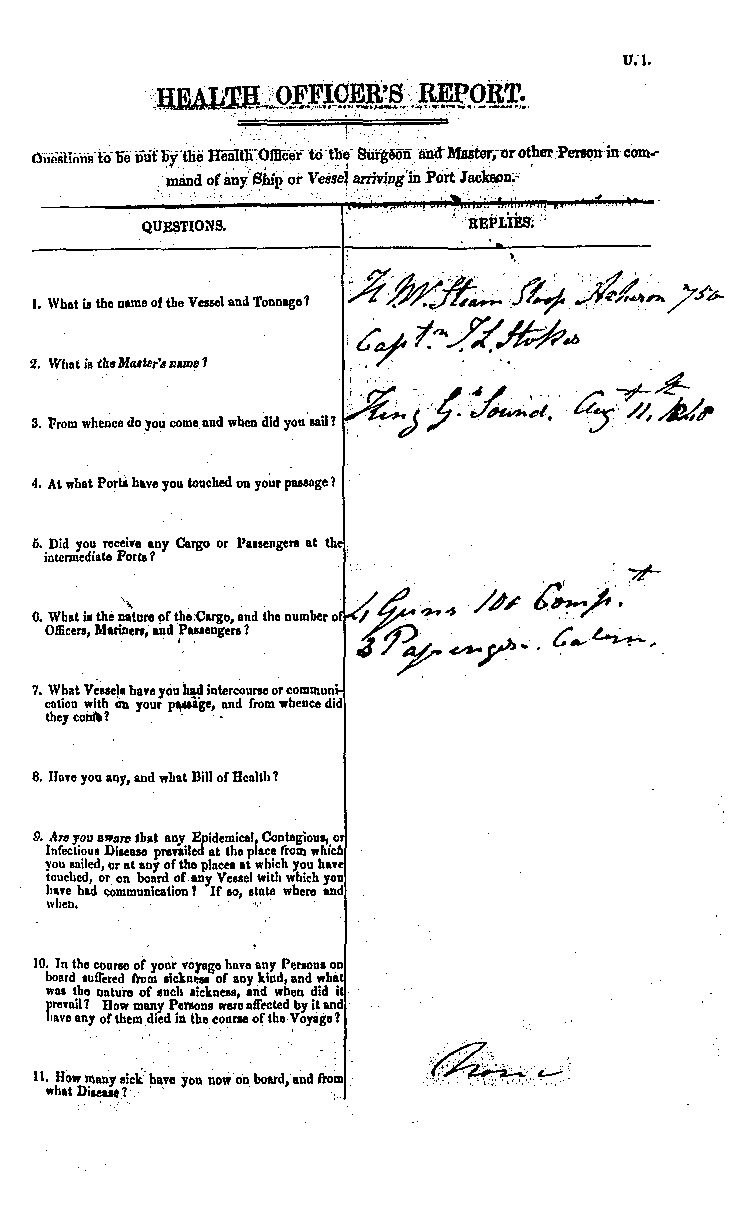 U. 1.
HEALTH OFFICER'S REPORT.
Questions to be put by the Health Officer to the Surgeon and Master, or other Person in com-
mand of any Ship or Vessel arriving in Port Jackson.
QUESTIONS.
REPLIES.
1. What is the name of the Vessel and Tonnage?
H. M. Steam Sloop Acheron 750
2. What is the Master's name?
Captn. J. L. Stokes
3. From whence do you come and when did you sail?
King G.s Sound. Augt 11th 1848
4. At what Ports have you touched on your passage?
5. Did you receive any Cargo or Passengers at the
intermediate Ports?
6. What is the nature of the Cargo, and the number of
Officers, Mariners, and Passengers?
4 Guns 100 Compt.
3 Passengers.
7. What Vessels have you had intercourse or communi-
cation with on your passage, and from whence did
they come?
8. Have you any, and what Bill of Health?
9. Are you aware that any Epidemical, Contagious, or
Infectious Disease prevailed at the place from which
you sailed, or at any of the places at which you have
touched, or on board of any Vessel with which you
have had communication? If so, state where and
when.
10. In the course of your voyage have any Persons on
board suffered from sickness of any kind, and what
was the nature of such sickness, and when did it
prevail? How many Persons were affected by it and
have any of them died in the course of the Voyage?
11. How many sick have you now on board, and from
what Disease?
None